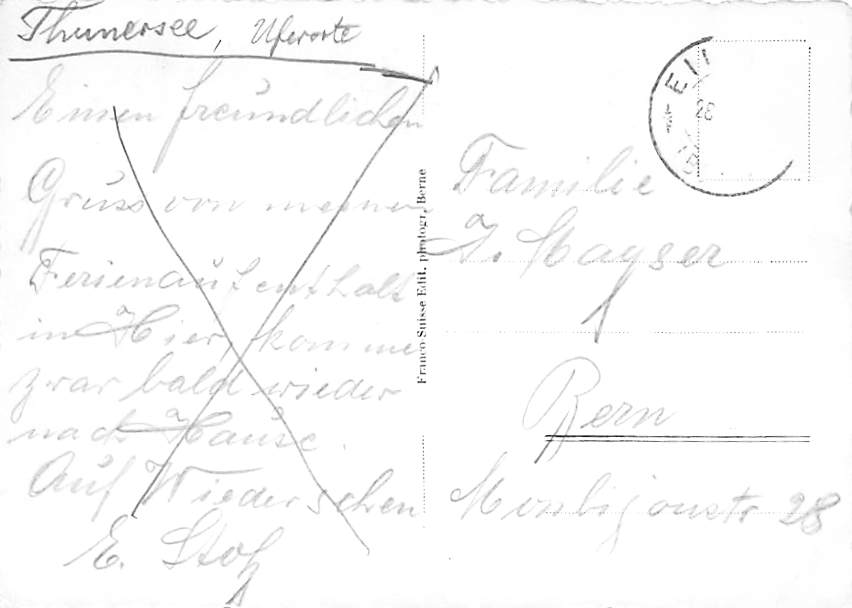 Thunersee, Uferorte
Einen freundlichen
Gruss von meinem
Ferienaufenthalt
in Hier, komme
zwar bald wieder
nach Hause.
Auf Wiedersehen
E. Stolz
Franco-Suisse Edit. photogr. Berne
Familie
J. Mayser
Bern
Monbijoustr 28